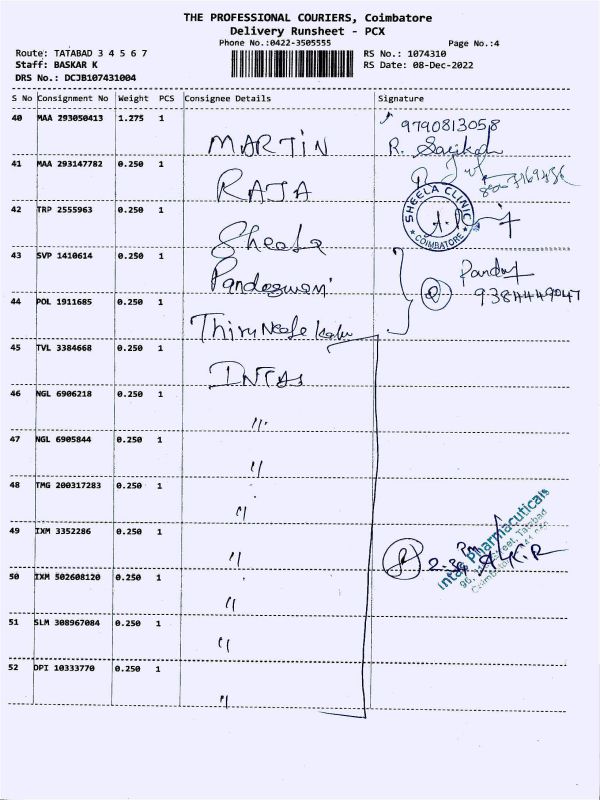 THE PROFESSIONAL COURIERS, Coimbatore
Delivery Runsheet - PCX
Phone No.:0422-3505555
Page No.:4
Route: TATABAD 3 4 5 6 7
RS No.: 1074310
Staff: BASKAR K
RS Date: 08-Dec-2022
DRS No.: DCJB107431004
S No Consignment No Weight PCS Consignee Details Signature
40 MAA 293050413 1.275 1
MARTIN
9790813058
R.
41 MAA 293147782 0.250 1
RAJA
42 TRP 2555963 0.250 1
Sheela
SHEELA CLINIC
COIMBATORE
43 SVP 1410614 0.250 1
Pandeswari
44 POL 1911685 0.250 1
9384449047
45 TVL 3384668 0.250 1
INTAS
46 NGL 6906218 0.250 1
"
47 NGL 6905844 0.250 1
"
48 TMG 200317283 0.250 1
"
49 IXM 3352286 0.250 1
"
Intas Pharmacuticals
50 IXM 502608120 0.250 1
"
51 SLM 308967084 0.250 1
"
52 DPI 10333770 0.250 1
"